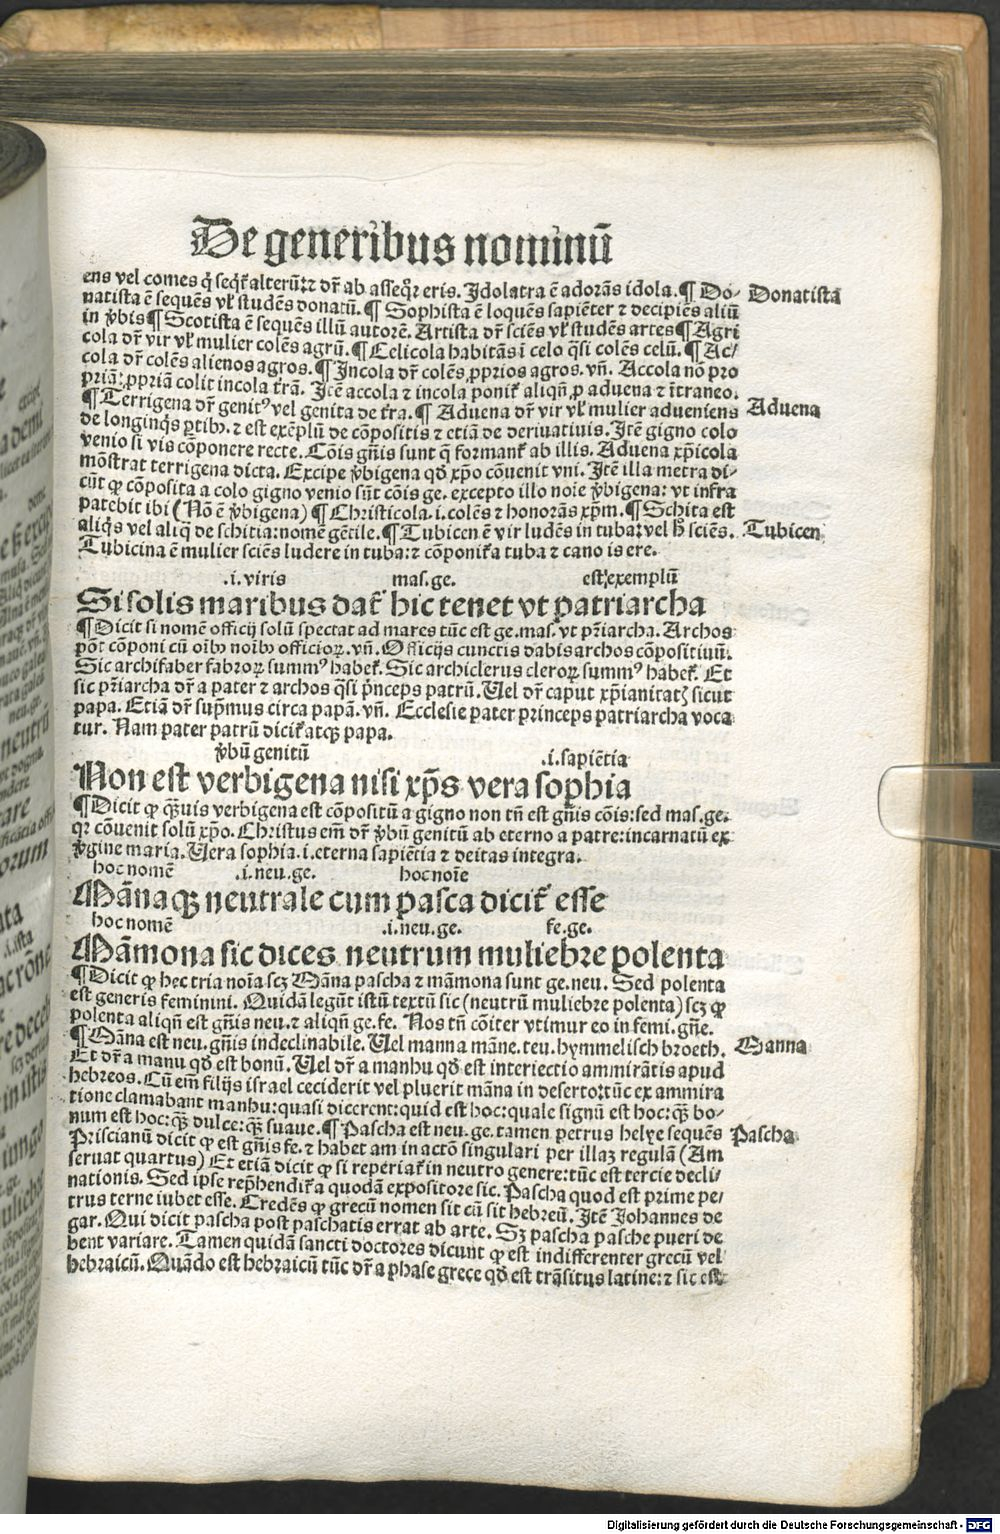 De generibus nominũ
ens vel comes q̃ seqr̃ alterũ: ⁊ dr̃ ab asseqr̃ eris. Idolatra ẽ adorãs idola. ¶ Do- Donatista
natista ẽ sequẽs vl̃ studẽs donatũ. ¶ Sophista ẽ loquẽs sapiẽter ⁊ decipiẽs aliũ
in ṽbis ¶ Scotista ẽ sequẽs illũ autorẽ. Artista dr̃ sciẽs vl̃ studẽs artes ¶ Agri
cola dr̃ vir vl̃ mulier colẽs agrũ. ¶ Celicola habitãs ĩ celo q̃si colẽs celũ. ¶ Ac/
cola dr̃ colẽs alienos agros. ¶ Incola dr̃ colẽs ꝓprios agros. vñ. Accola nõ pro
priã: ꝓpriã colit incola t̃rã. Itẽ accola ⁊ incola ponit̃ aliqñ ꝓ aduena ⁊ ĩtraneo.
¶ Terrigena dr̃ genitꝰ vel genita de t̃ra. ¶ Aduena dr̃ vir vl̃ mulier adueniens Aduena
de longinq̃s ꝑtibꝰ. ⁊ est exẽplũ de cõpositis ⁊ etiã de deriuatiuis. Itẽ gigno colo
venio si vis cõponere recte. Cõis gñis sunt q̃ formant̃ ab illis. Aduena xp̃icola
mõstrat terrigena dicta. Excipe ṽbigena qđ xp̃o cõuenit vni. Itẽ illa metra di-
cũt ꝙ cõposita a colo gigno venio sũt cõis ge. excepto illo noĩe ṽbigena: vt infra
patebit ibi (Nõ ẽ ṽbigena) ¶ Christicola. i. colẽs ⁊ honorãs xp̃m. ¶ Schita est
aliq̃s vel aliq̃ de schitia: nomẽ gẽtile. ¶ Tubicen ẽ vir ludẽs in tuba: vel h̃ sciẽs. Tubicen
Tubicina ẽ mulier sciẽs ludere in tuba: ⁊ cõponit̃ a tuba ⁊ cano is ere.
.i. viris mas. ge. est exemplũ
Si solis maribus dat̃ hic tenet vt patriarcha
¶ Dicit si nomẽ officij solũ spectat ad mares tũc est ge. mas. vt pr̃iarcha. Archos
põt cõponi cũ oĩbꝰ noĩbꝰ officioꝝ. vñ. Officijs cunctis dabis archos cõpositiuũ.
Sic archifaber fabroꝝ summꝰ habet̃. Sic archiclerus cleroꝝ summꝰ habet̃. Et
sic pr̃iarcha dr̃ a pater ⁊ archos q̃si p̃nceps patrũ. Uel dr̃ caput xp̃ianitatꝭ sicut
papa. Etiã dr̃ sup̃mus circa papã. vñ. Ecclesie pater princeps patriarcha voca
tur. Nam pater patrũ dicit̃ atqꝫ papa.
ṽbũ genitũ .i. sapiẽtia
Non est verbigena nisi xp̃s vera sophia
¶ Dicit ꝙ q̃ꝫuis verbigena est cõpositũ a gigno non tñ est gñis cõis: sed mas. ge.
qr cõuenit solũ xp̃o. Christus em̃ dr̃ ṽbũ genitũ ab eterno a patre: incarnatũ ex
ṽgine maria. Uera sophia. i. eterna sapiẽtia ⁊ deitas integra.
hoc nomẽ .i. neu. ge. hoc noĩe
Mãnaqꝫ neutrale cum pasca dicit̃ esse
hoc nomẽ .i. neu. ge. fe. ge.
Mãmona sic dices neutrum muliebre polenta
¶ Dicit ꝙ hec tria noĩa scꝫ Mãna pascha ⁊ mãmona sunt ge. neu. Sed polenta
est generis feminini. Quidã legũt istũ textũ sic (neutrũ muliebre polenta) scꝫ ꝙ
polenta aliqñ est gñis neu. ⁊ aliqñ ge. fe. Nos tñ cõiter vtimur eo in femi. gñe.
¶ Mãna est neu. gñis indeclinabile. Uel manna mãne. teu. hymmelisch broeth. Manna
Et dr̃ a manu qđ est bonũ. Uel dr̃ a manhu qđ est interiectio ammirãtis apud
hebreos. Cũ em̃ filijs israel ceciderit vel pluerit mãna in deserto: tũc ex ammira
tione clamabant manhu: quasi dicerent: quid est hoc: quale signũ est hoc: q̃ꝫ bo-
num est hoc: q̃ꝫ dulce: q̃ꝫ suaue. ¶ Pascha est neu. ge. tamen petrus helye sequẽs Pascha
Priscianũ dicit ꝙ est gñis fe. ⁊ habet am in actõ singulari per illaꝫ regulã (Am
seruat quartus) Et etiã dicit ꝙ si reperiat̃ in neutro genere: tũc est tercie decli/
nationis. Sed ipse rep̃hendit̃ a quodã expositore sic. Pascha quod est prime pe/
trus terne iubet esse. Credẽs ꝙ grecũ nomen sit cũ sit hebreũ. Itẽ Johannes de
gar. Qui dicit pascha post paschatis errat ab arte. Sꝫ pascha pasche pueri de
bent variare. Tamen quidã sancti doctores dicunt ꝙ est indifferenter grecũ vel
hebraicũ. Quãdo est hebraicũ tũc dr̃ a phase grece qđ est trãsitus latine: ⁊ sic est
Digitalisierung gefördert durch die Deutsche Forschungsgemeinschaft - DFG